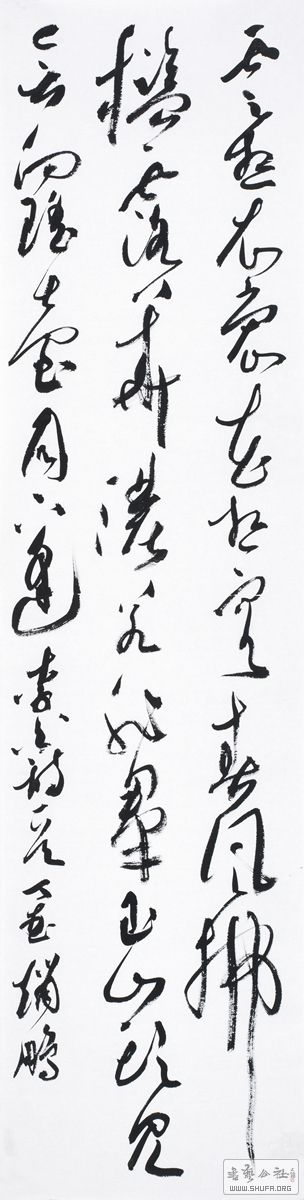 云想衣裳花想容春风拂
槛露华浓若非群玉山头见
会向瑶台月下逢 李白诗一首
WWW.SHUFA.ORG